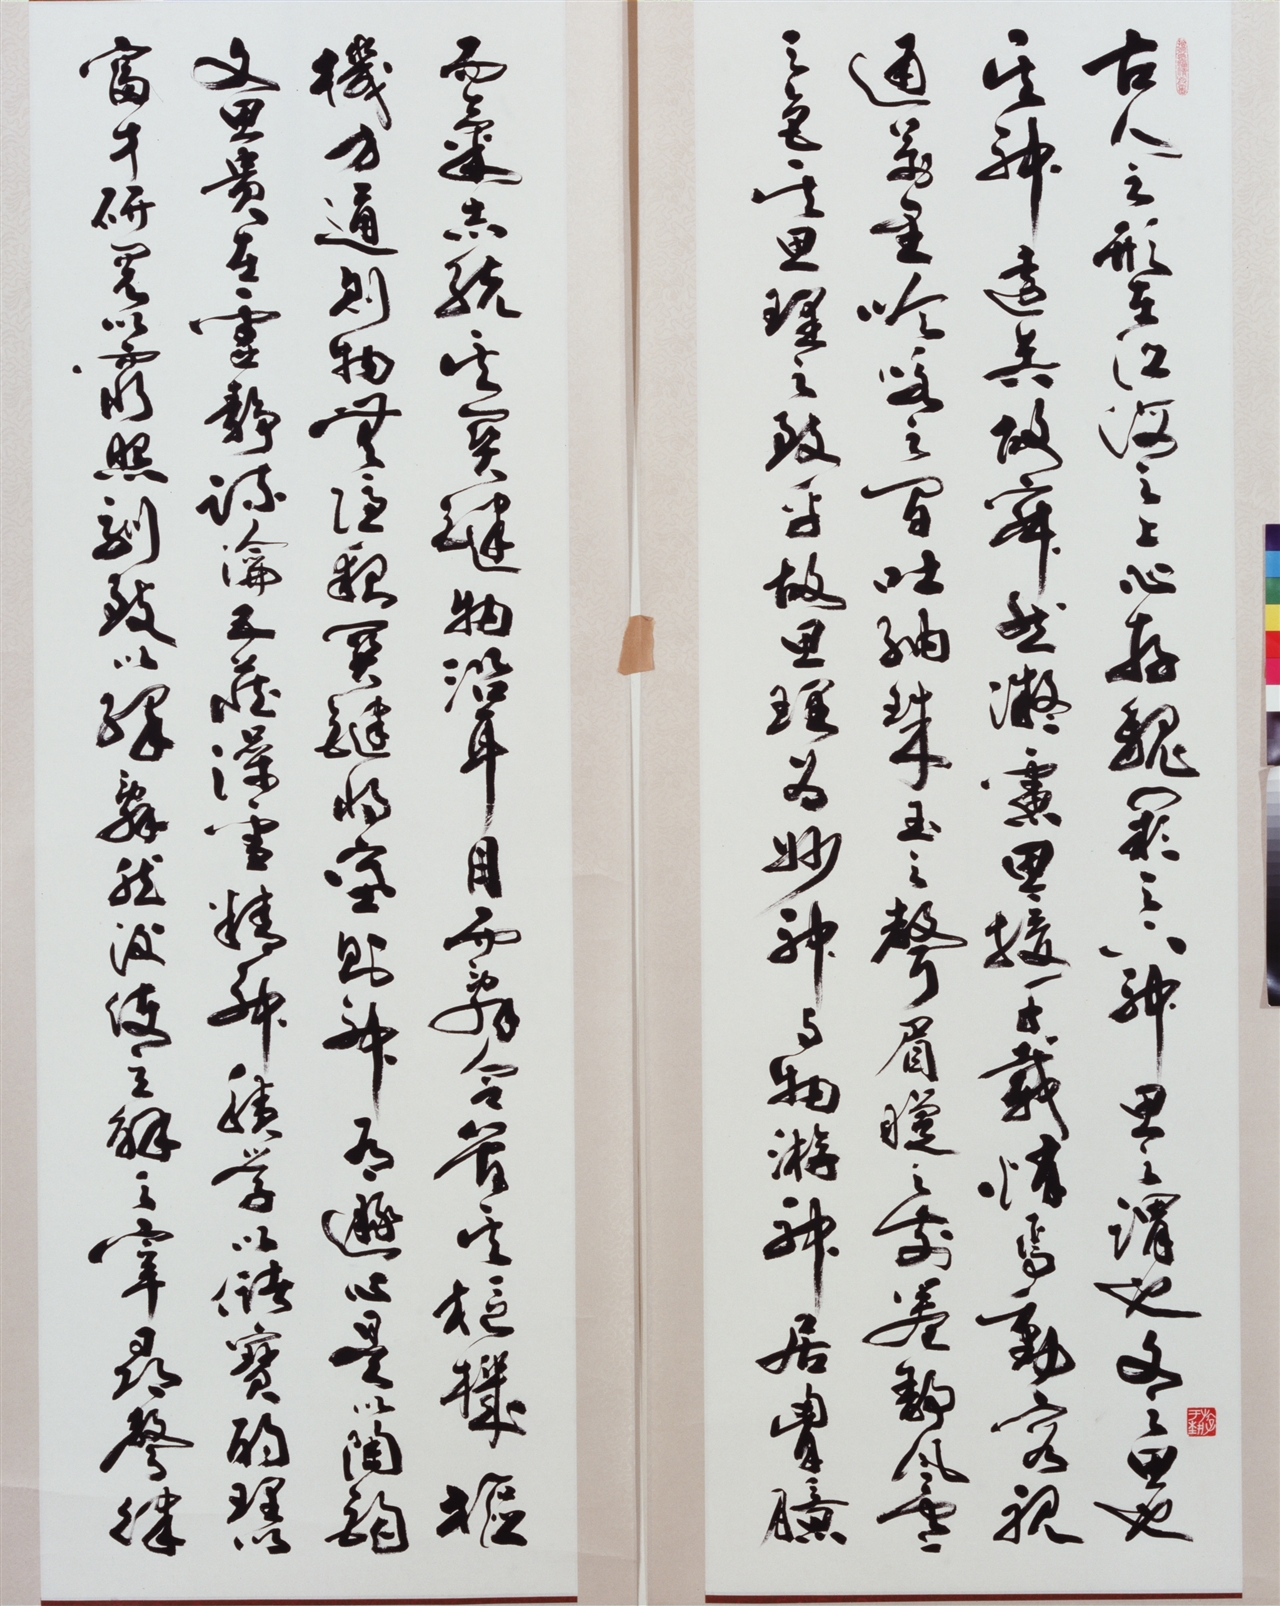 古人云形在江海之上心存魏闕之下神思之謂也文之思也
其神遠矣故寂然凝慮思接千載悄焉動容視
通萬里吟咏之間吐納珠玉之聲眉睫之前卷舒風雲
之色其思理之致乎故思理為妙神與物游神居胸臆
而氣志統其關鍵物沿耳目而辭令管其樞機樞
機方通則物無隱貌關鍵將塞則神有遯心是以陶鈞
文思貴在虛靜疏瀹五藏澡雪精神積學以儲寶酌理以
富才研閱以窮照馴致以繹辭然後使玄解之宰尋聲律